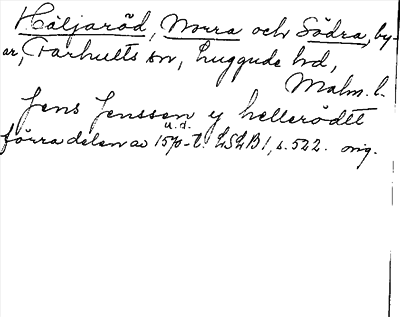 Häljaröd, Norra och Södra, by-
ar, Farhults sn, Luggude hd,
Malm. l.
Jens Jenssen y hellerödtt
u.d.
förra delen av 1570-t. LSLB 1, s. 522. orig.